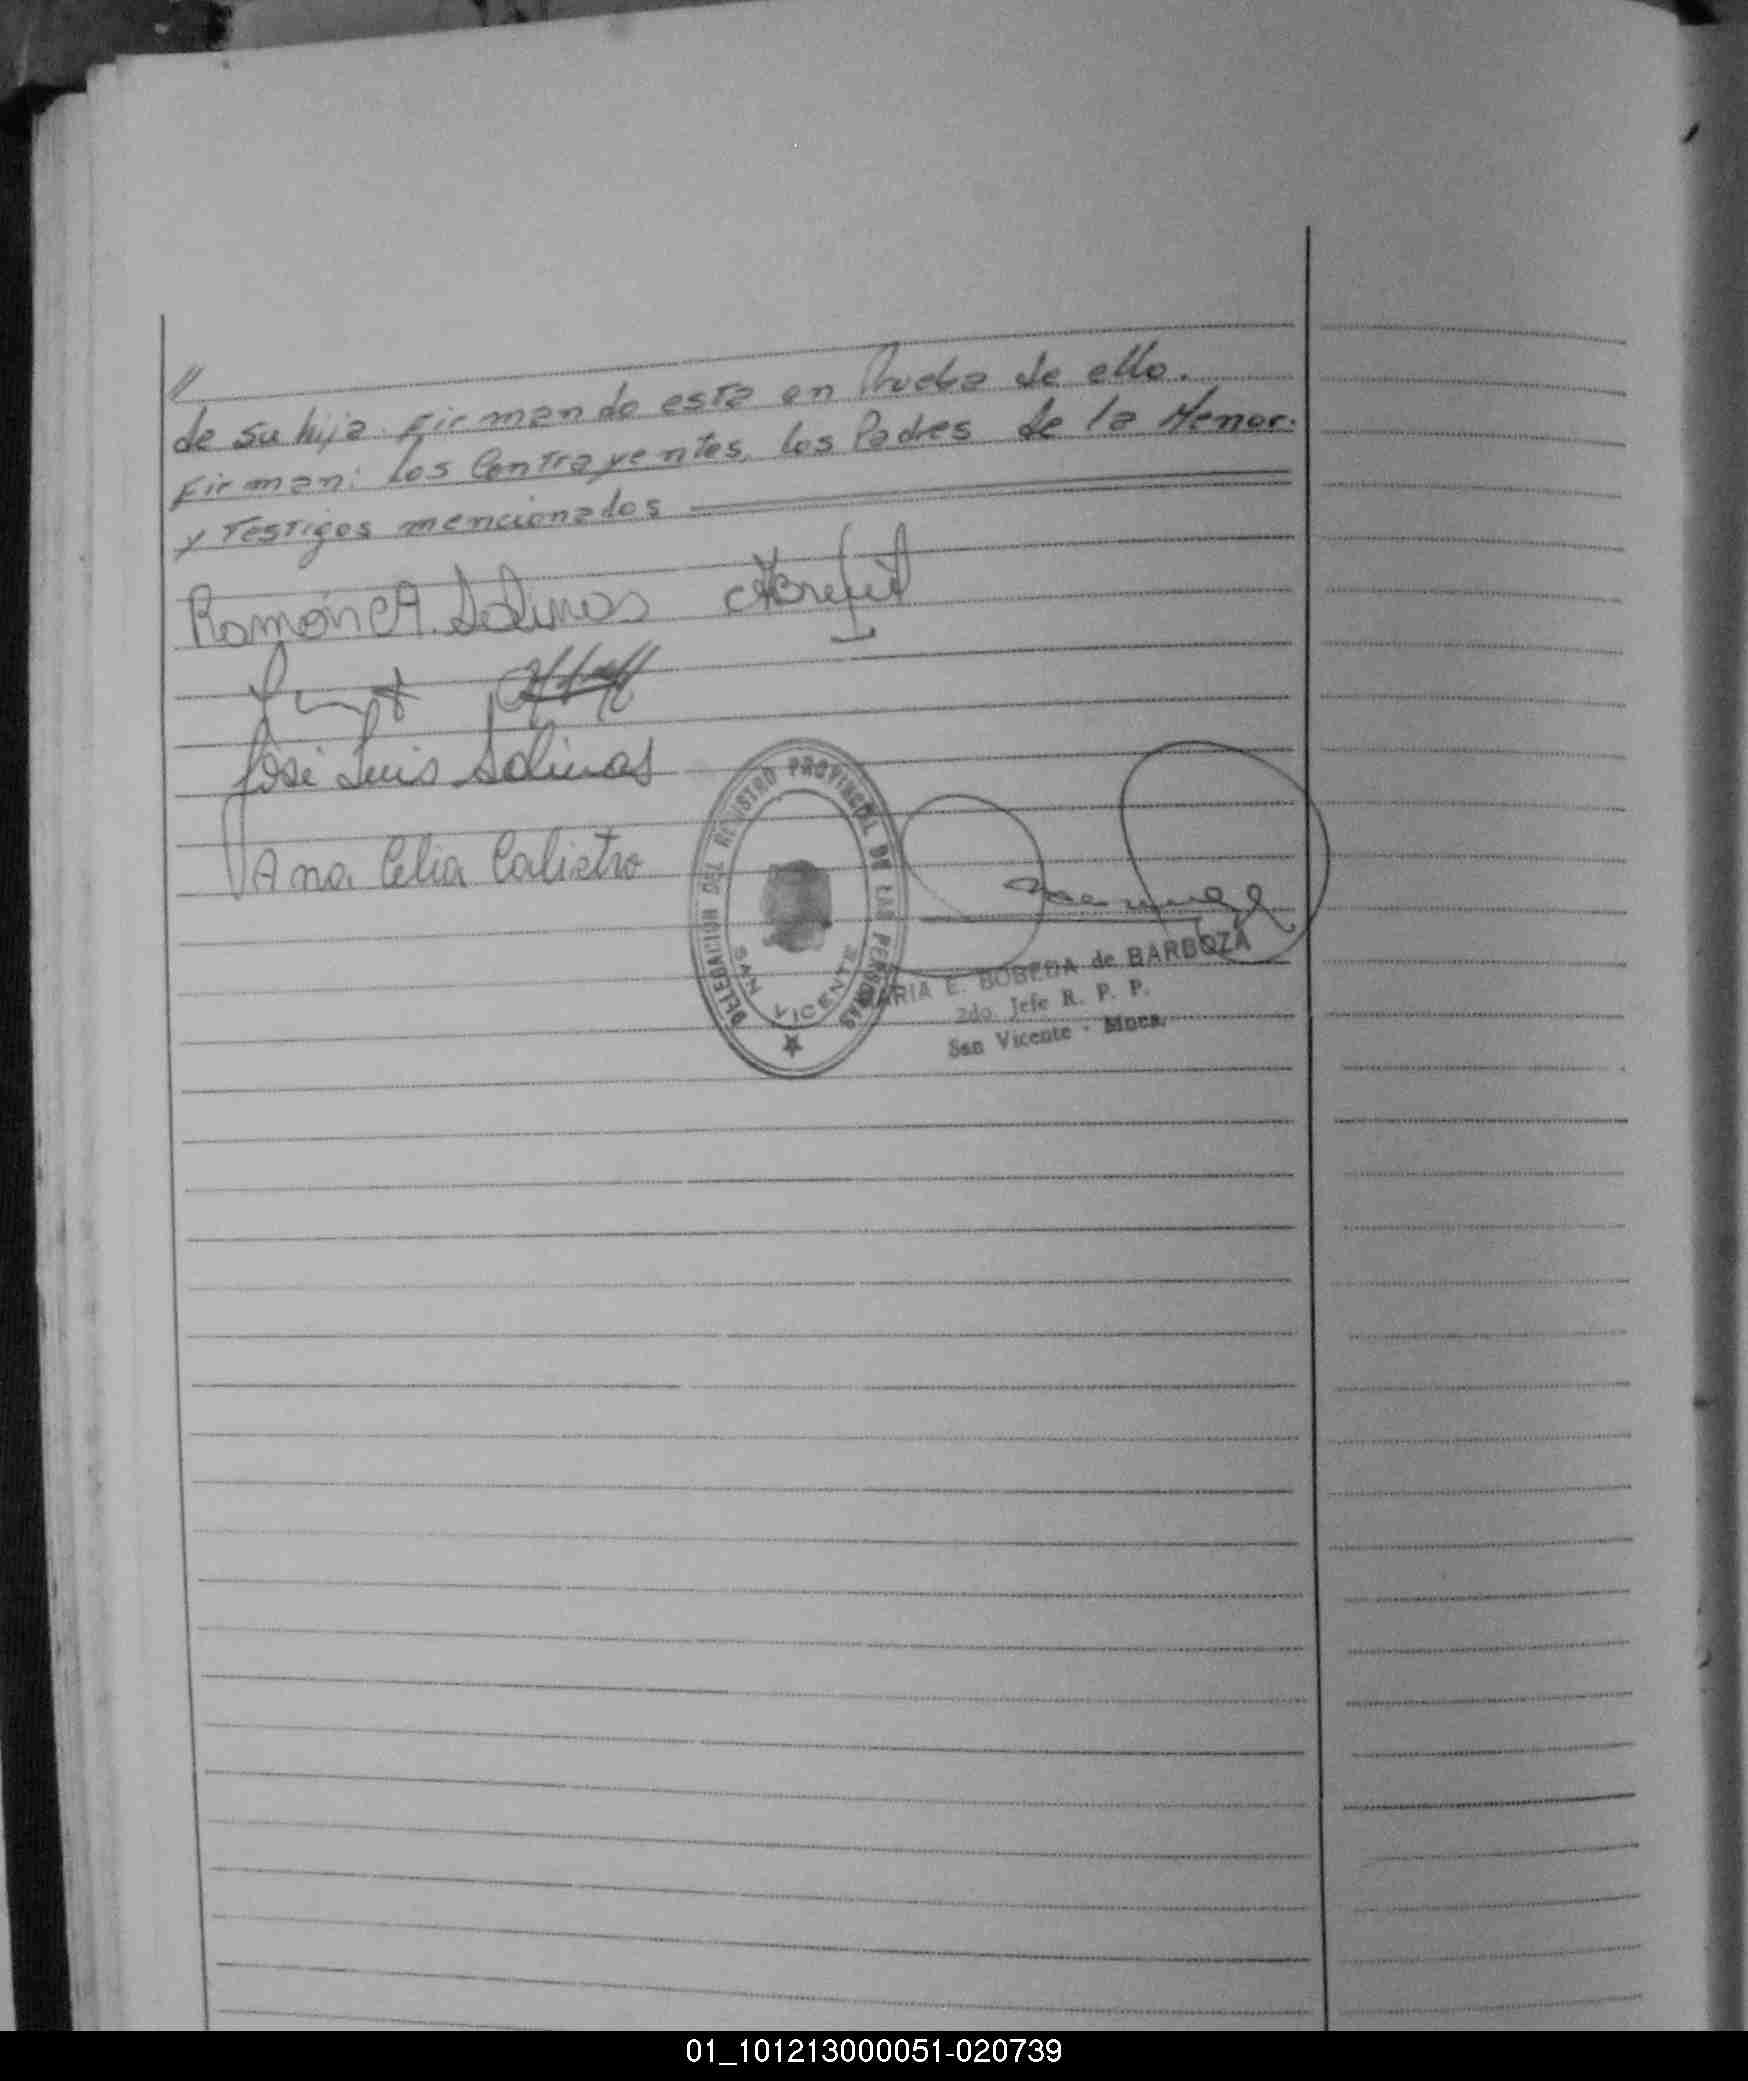 //
de su hija. Firmando esta en Prueba de ello.
Firman: los Contrayentes, los Padres de la Menor.
y Testigos mencionados
Ramón A. Salinas
José Luis Salinas
Ana Celia Calistro
DELEGACION DEL REGISTRO PROVINCIAL DE LAS PERSONAS
SAN VICENTE
MARIA E. BOBEDA de BARBOZA
2do. Jefe R. P. P.
San Vicente - Mnes.
01_101213000051-020739